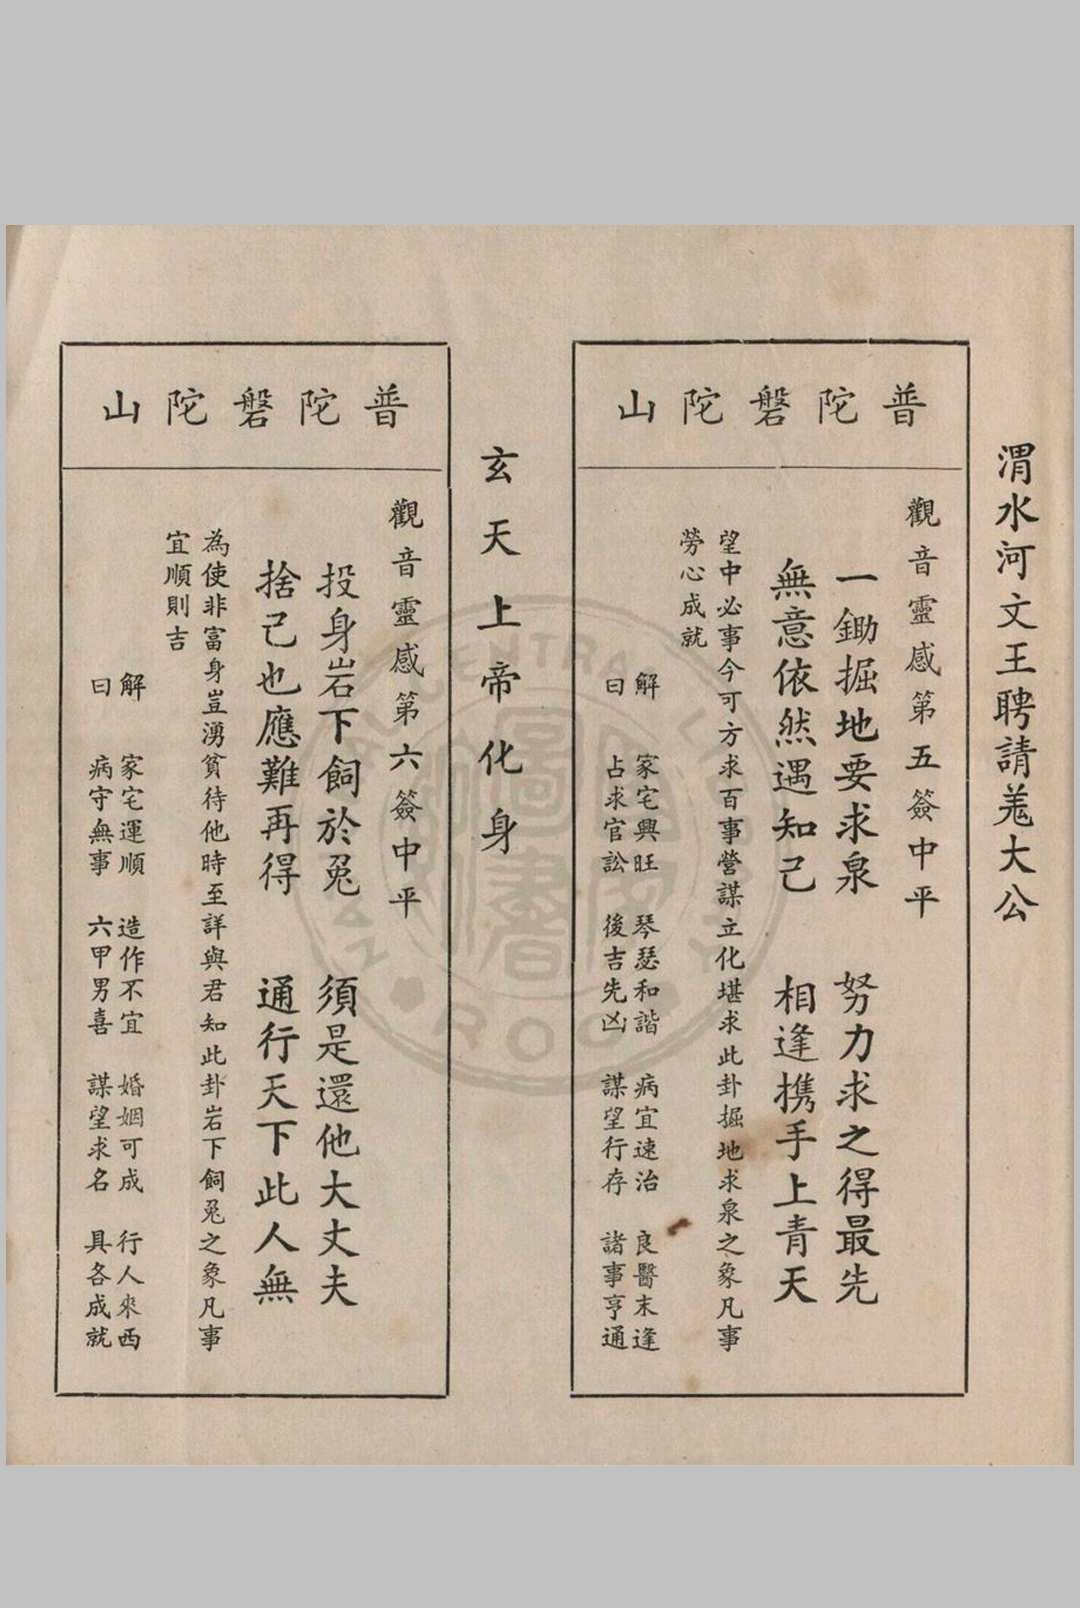 渭水河文王聘請羗大公
普陀磐陀山
觀音靈感第五簽中平
一鋤掘地要求泉 努力求之得最先
無意依然遇知己 相逢携手上青天
望中必事今可方求百事營謀立化堪求此卦掘地求泉之象凡事
勞心成就
解曰
家宅興旺 琴瑟和諧 病宜速治 良醫末逢
占求官訟 後吉先凶 謀望行存 諸事亨通
玄天上帝化身
普陀磐陀山
觀音靈感第六簽中平
投身岩下飼於兔 須是還他大丈夫
捨己也應難再得 通行天下此人無
為使非富身豈湧貧待他時至詳與君知此卦岩下飼兔之象凡事
宜順則吉
解曰
家宅運順 造作不宜 婚姻可成 行人來西
病守無事 六甲男喜 謀望求名 具各成就
CENTRAL
ROC
圖書